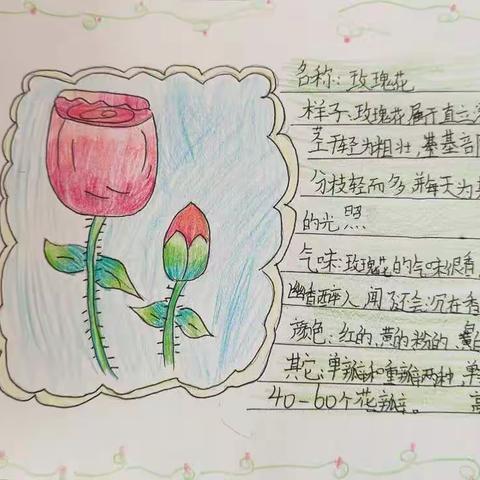 名称：玫瑰花
样子：玫瑰花属于直立
茎干较为粗壮，基部
分枝轻而多，并每天为
的光照
气味：玫瑰花的气味很香，
幽香醉人，闻了还会沉在香
颜色：红的、黄的粉的、
其它：单瓣和重瓣两种，单
40-60个花瓣。